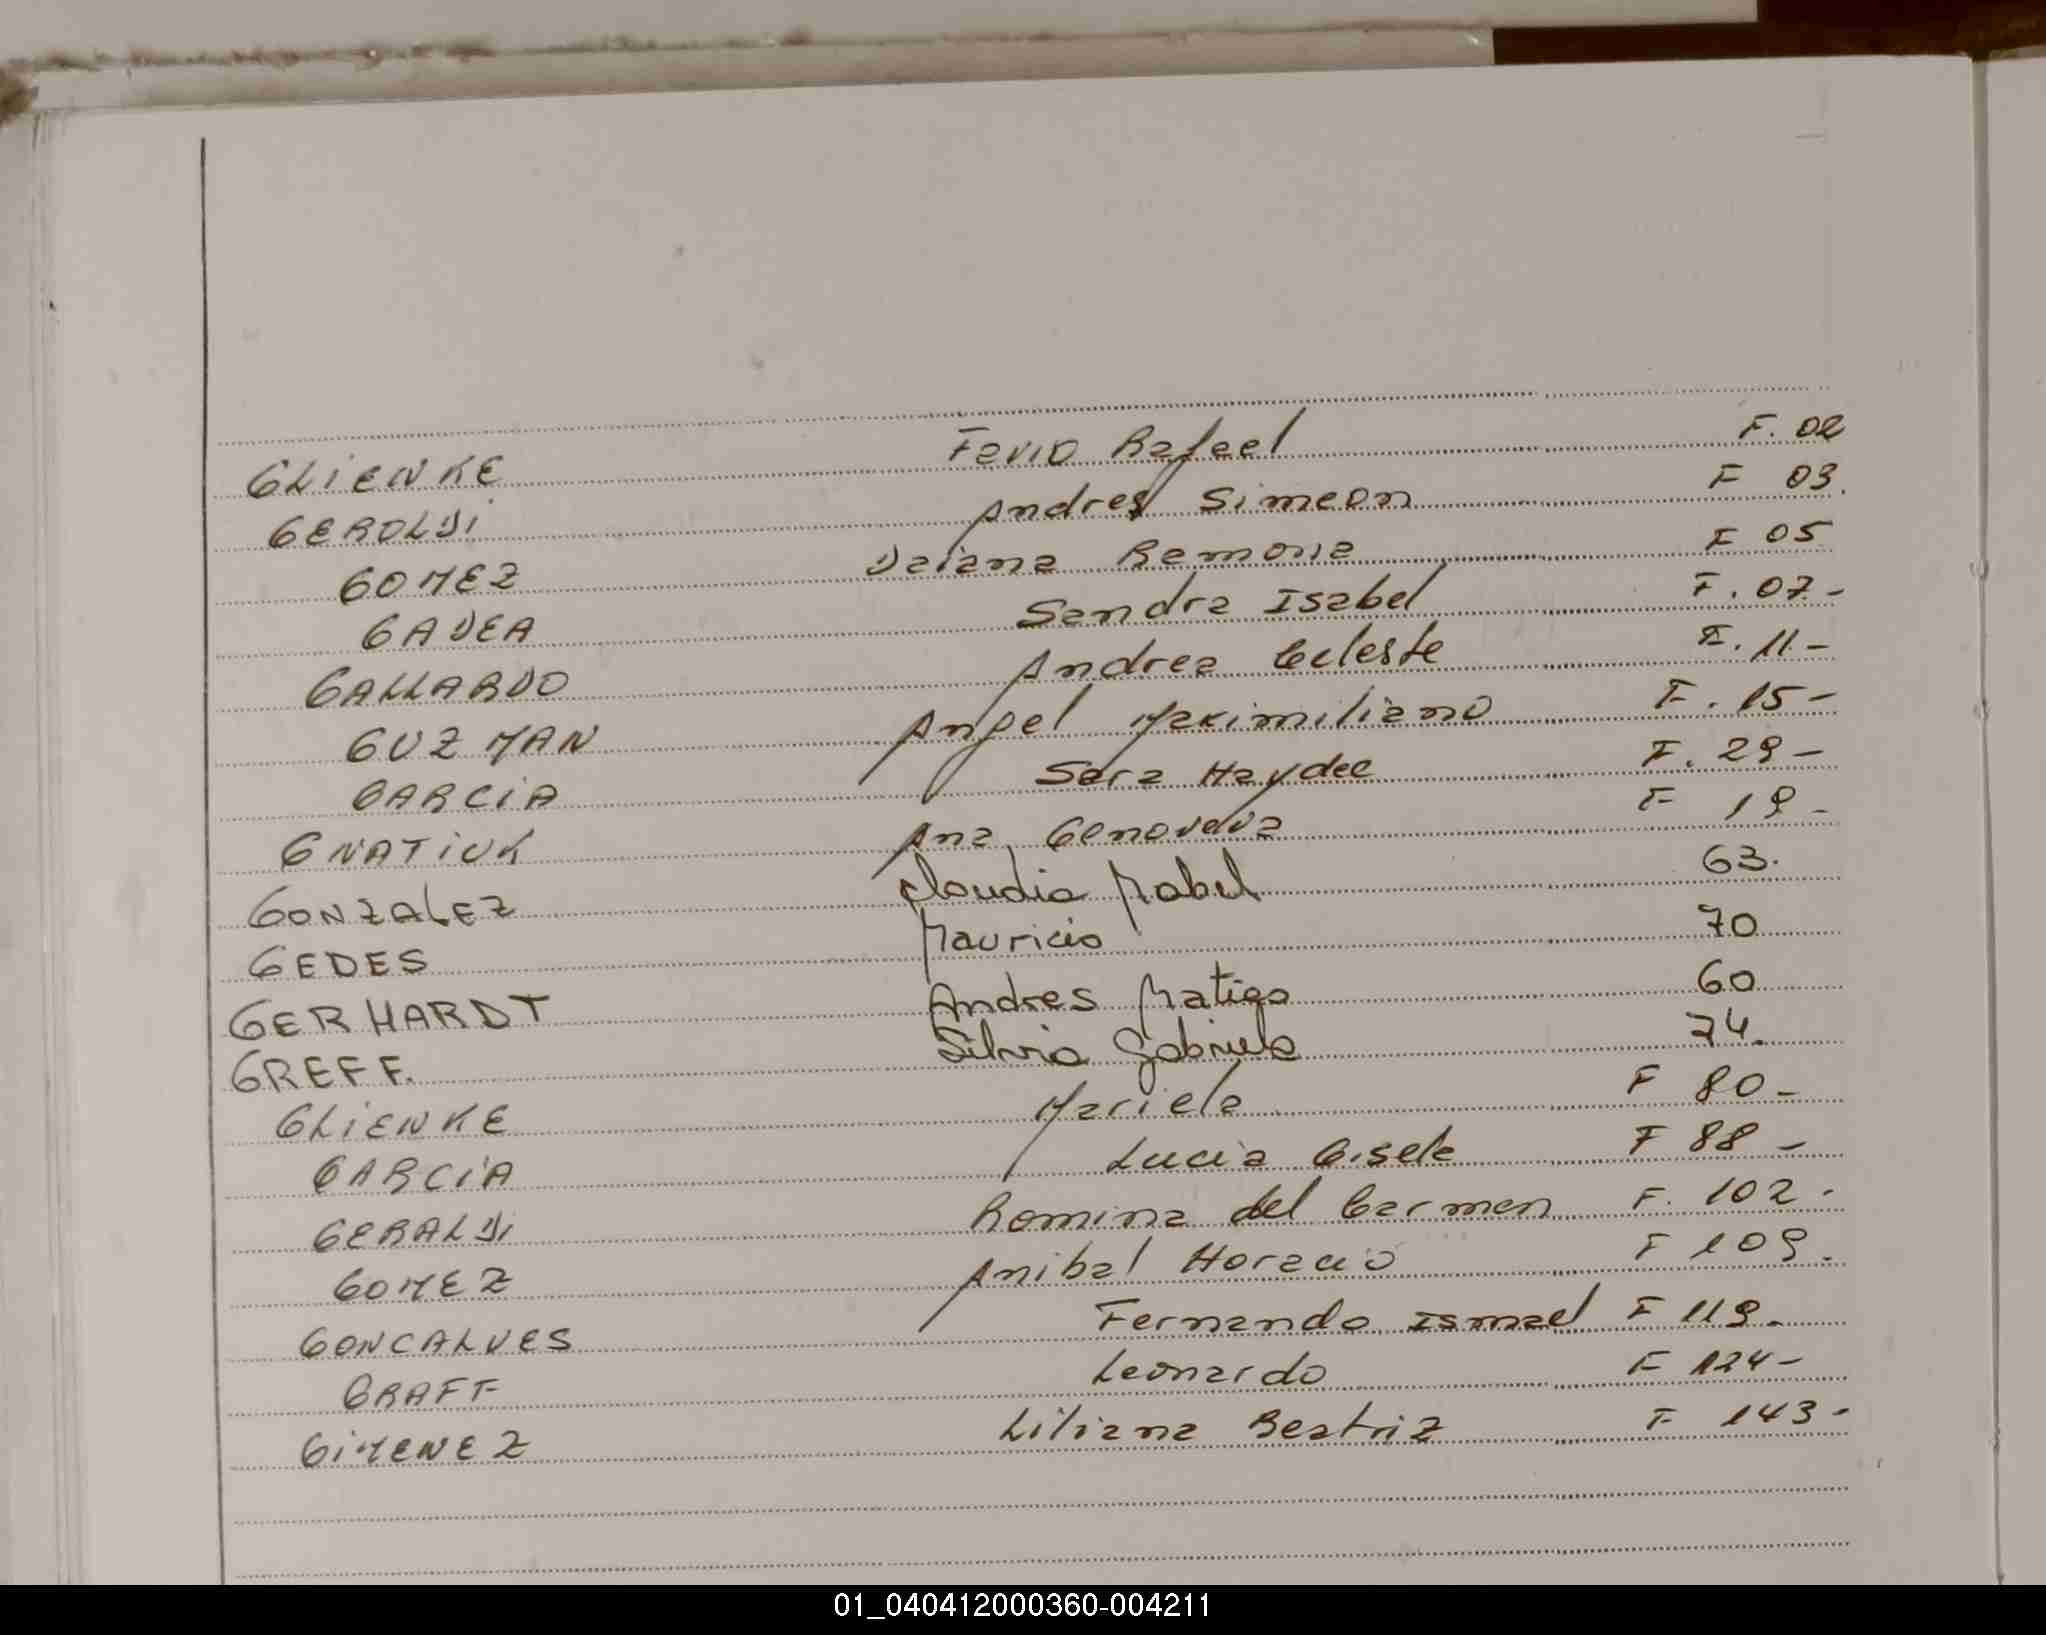 GLIENKE Favio Rafael F. 02
GEROLDI Andres Simeon F 03.
GOMEZ Daiana Ramona F 05
GADEA Sandra Isabel F. 07-
GALLARDO Andrea Celeste F. 11-
GUZMAN Angel Maximiliano F. 15-
GARCIA Sara Haydee F. 29-
GNATIUK Ana Genoveva F 19-
GONZALEZ Claudia Mabel 63.
GEDES Mauricio 70
GERHARDT Andres Matias 60
GREFF. Silvia Gabriela 74.
GLIENKE Mariela F 80-
GARCIA Lucia Gisele F 88-
GERALDI Romina del Carmen F. 102.
GOMEZ Anibal Horacio F 109.
GONCALVES Fernando Ismael F 119.
GRAFF Leonardo F 124-
GIMENEZ Liliana Beatriz F 143-
01_040412000360-004211